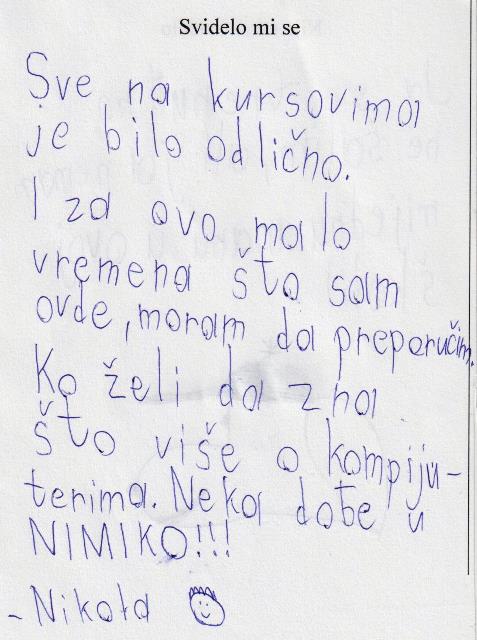 Svidelo mi se
Sve na kursovima
je bilo odlično.
I za ovo malo
vremena što sam
ovde, moram da preporučim.
Ko želi da zna
što više o kompiju-
terima. Neka dođe u
NIMIKO!!!
- Nikola